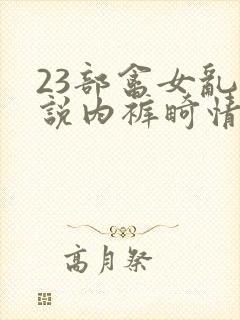 23部畜女乱
説内裤畸情
高月祭